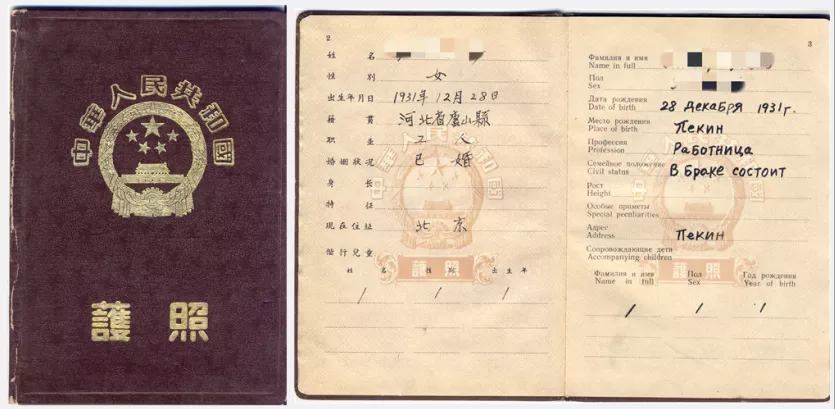 中華人民共和國
護照
2
姓名
性別 女
出生年月日 1931年12月28日
籍貫 河北省盧山縣
职业 工人
婚姻状况 已婚
身長
特征
現在住址 北京
偕行兒童
姓名 性別 出生年
/ / /
中華人民共和國
護照
3
Фамилия и имя
Name in full
Пол
Sex
Дата рождения
Date of birth 28 декабря 1931г.
Место рождения
Place of birth Пекин
Профессия
Profession Работница
Семейное положение
Civil status В браке состоит
Рост
Height
Особые приметы
Special peculiarities
Адрес
Address Пекин
Сопровождающие дети
Accompanying children
Фамилия и имя Пол Год рождения
Name in full Sex Year of birth
/ / /
護照